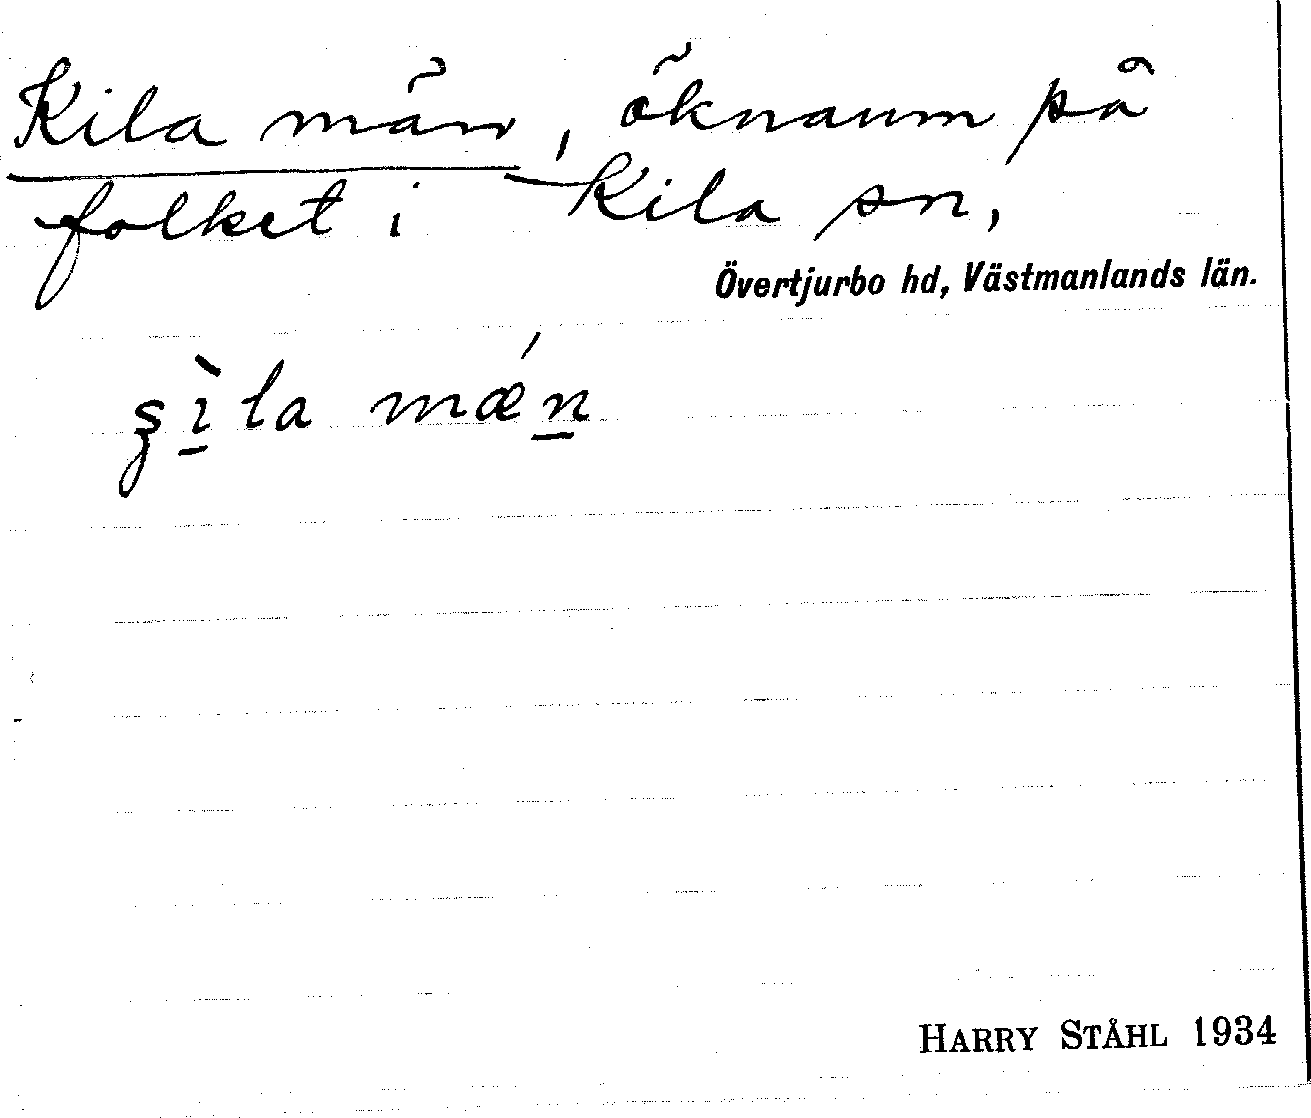 Kila män, öknamn på
folket i Kila sn,
Övertjurbo hd, Västmanlands län.
ʂì̱la mǽn̲
HARRY STÅHL 1934